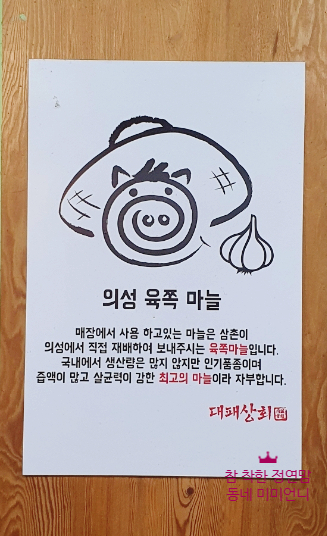 의성 육쪽 마늘
매장에서 사용 하고있는 마늘은 삼촌이
의성에서 직접 재배하여 보내주시는 육쪽마늘입니다.
국내에서 생산량은 많지 않지만 인기품종이며
즙액이 많고 살균력이 강한 최고의 마늘이라 자부합니다.
대패상회
참 착한 정연맘
동네 미미언니